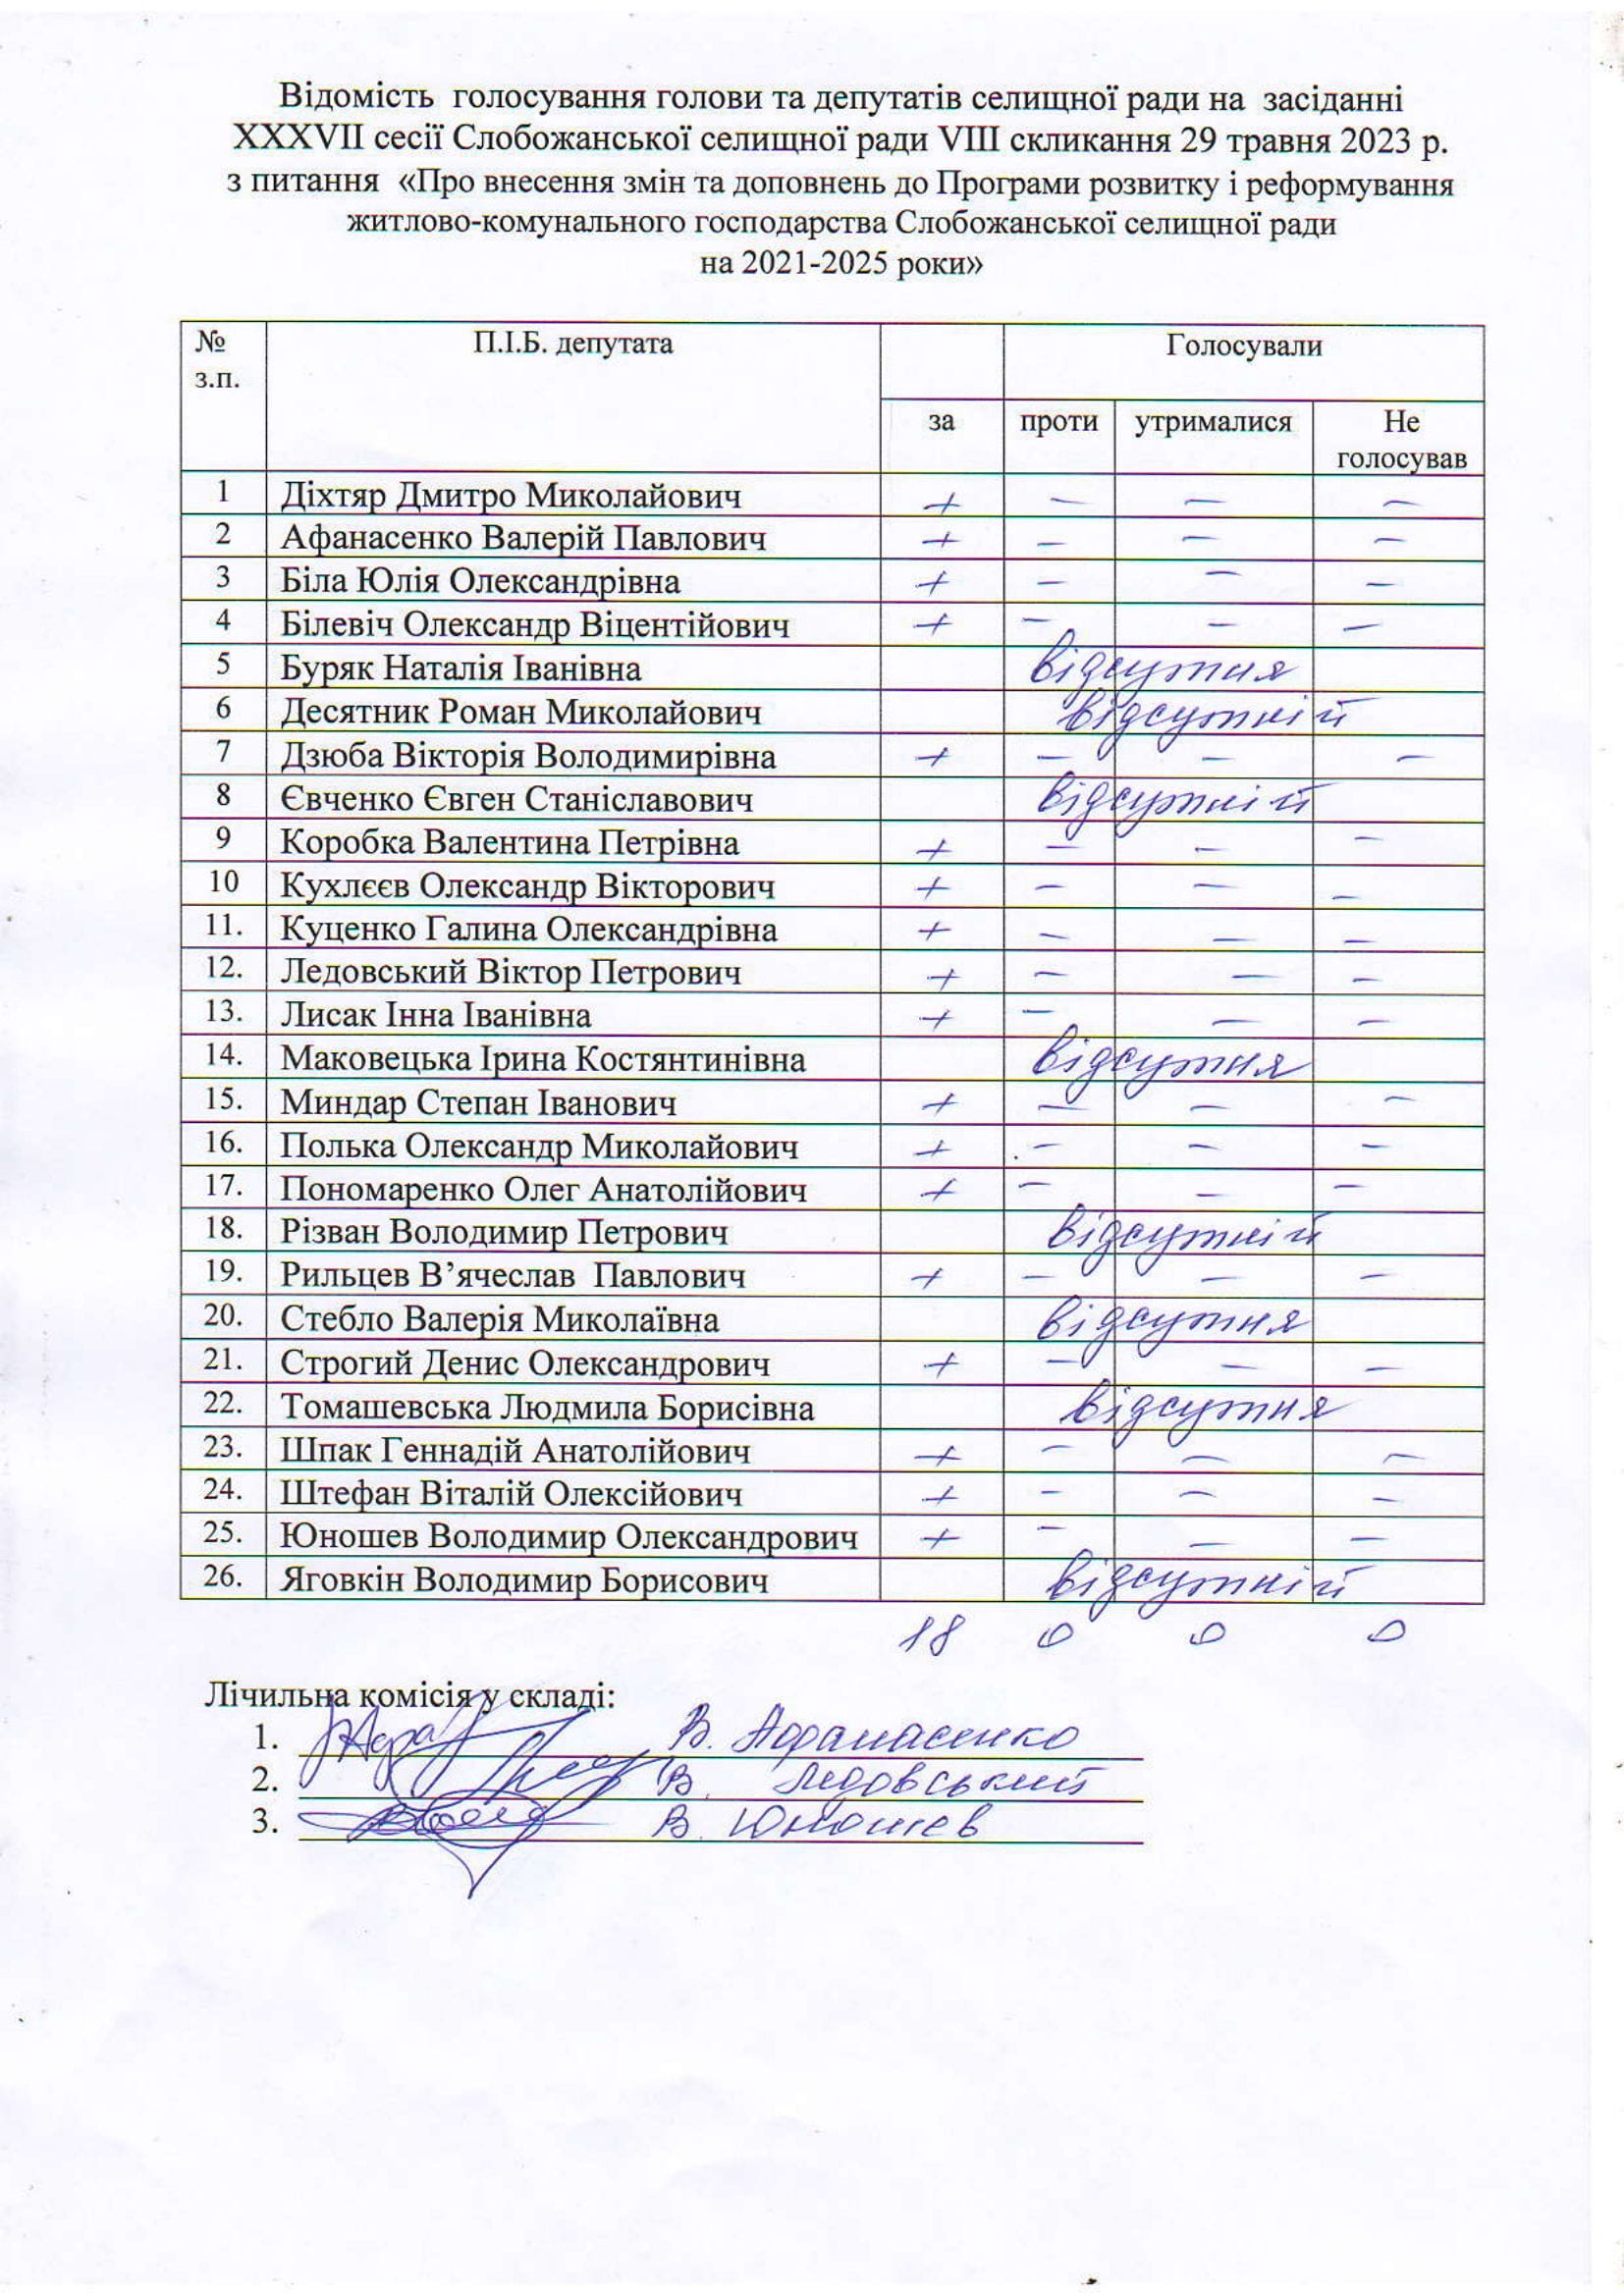 Відомість голосування голови та депутатів селищної ради на засіданні
XXXVII сесії Слобожанської селищної ради VIII скликання 29 травня 2023 р.
з питання «Про внесення змін та доповнень до Програми розвитку і реформування
житлово-комунального господарства Слобожанської селищної ради
на 2021-2025 роки»
№ з.п. П.І.Б. депутата Голосували
за проти утрималися Не голосував
1 Діхтяр Дмитро Миколайович + — — —
2 Афанасенко Валерій Павлович + — — —
3 Біла Юлія Олександрівна + — — —
4 Білевіч Олександр Віцентійович + — — —
5 Буряк Наталія Іванівна відсутня
6 Десятник Роман Миколайович відсутній
7 Дзюба Вікторія Володимирівна + — — —
8 Євченко Євген Станіславович відсутній
9 Коробка Валентина Петрівна + — — —
10 Кухлєєв Олександр Вікторович + — — —
11. Куценко Галина Олександрівна + — — —
12. Ледовський Віктор Петрович + — — —
13. Лисак Інна Іванівна + — — —
14. Маковецька Ірина Костянтинівна відсутня
15. Миндар Степан Іванович + — — —
16. Полька Олександр Миколайович + — — —
17. Пономаренко Олег Анатолійович + — — —
18. Різван Володимир Петрович відсутній
19. Рильцев В’ячеслав Павлович + — — —
20. Стебло Валерія Миколаївна відсутня
21. Строгий Денис Олександрович + — — —
22. Томашевська Людмила Борисівна відсутня
23. Шпак Геннадій Анатолійович + — — —
24. Штефан Віталій Олексійович + — — —
25. Юношев Володимир Олександрович + — — —
26. Яговкін Володимир Борисович відсутній
18 0 0 0
Лічильна комісія у складі:
1. В. Афанасенко
2. В. Ледовський
3. В. Юношев